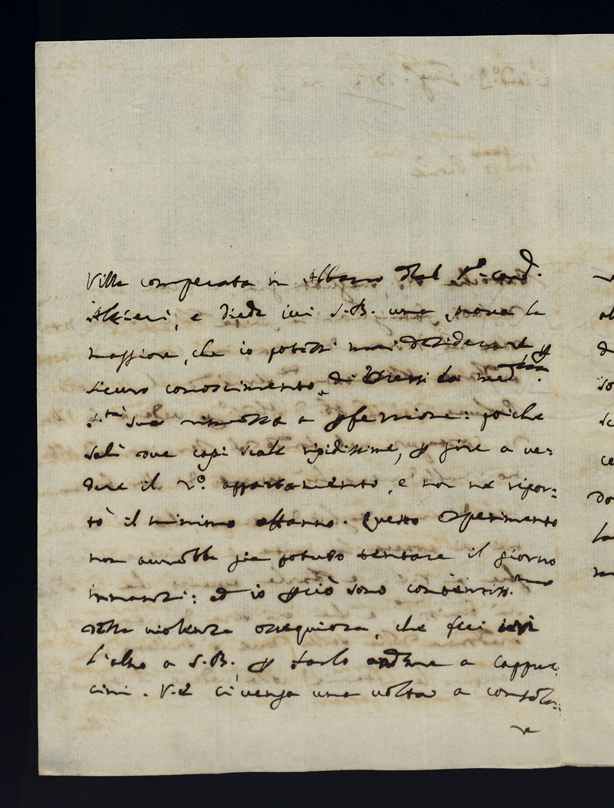 Villa comperata in Albano dal Sr. card.
Altieri, e diede ivi S. B. una prova la
maggiore, che io potessi mai desiderare p
sicuro conoscimento, di essersi la med.ma
S.tà sua rimessa a pfezione: poiche
salì due capi scale ripidissime, p gire a ve-
dere il 2º. appartamento, e non ne ripor-
tò il minimo affanno. Questo esperimento
non avrebbe già potuto tentare il giorno
innanzi: ed io pciò sono contentiss.mo
della violenza ossequiosa, che feci ieri
l'altro a S. B. p farlo andare a cappuc-
cini. V. E ci venga una volta a consola-